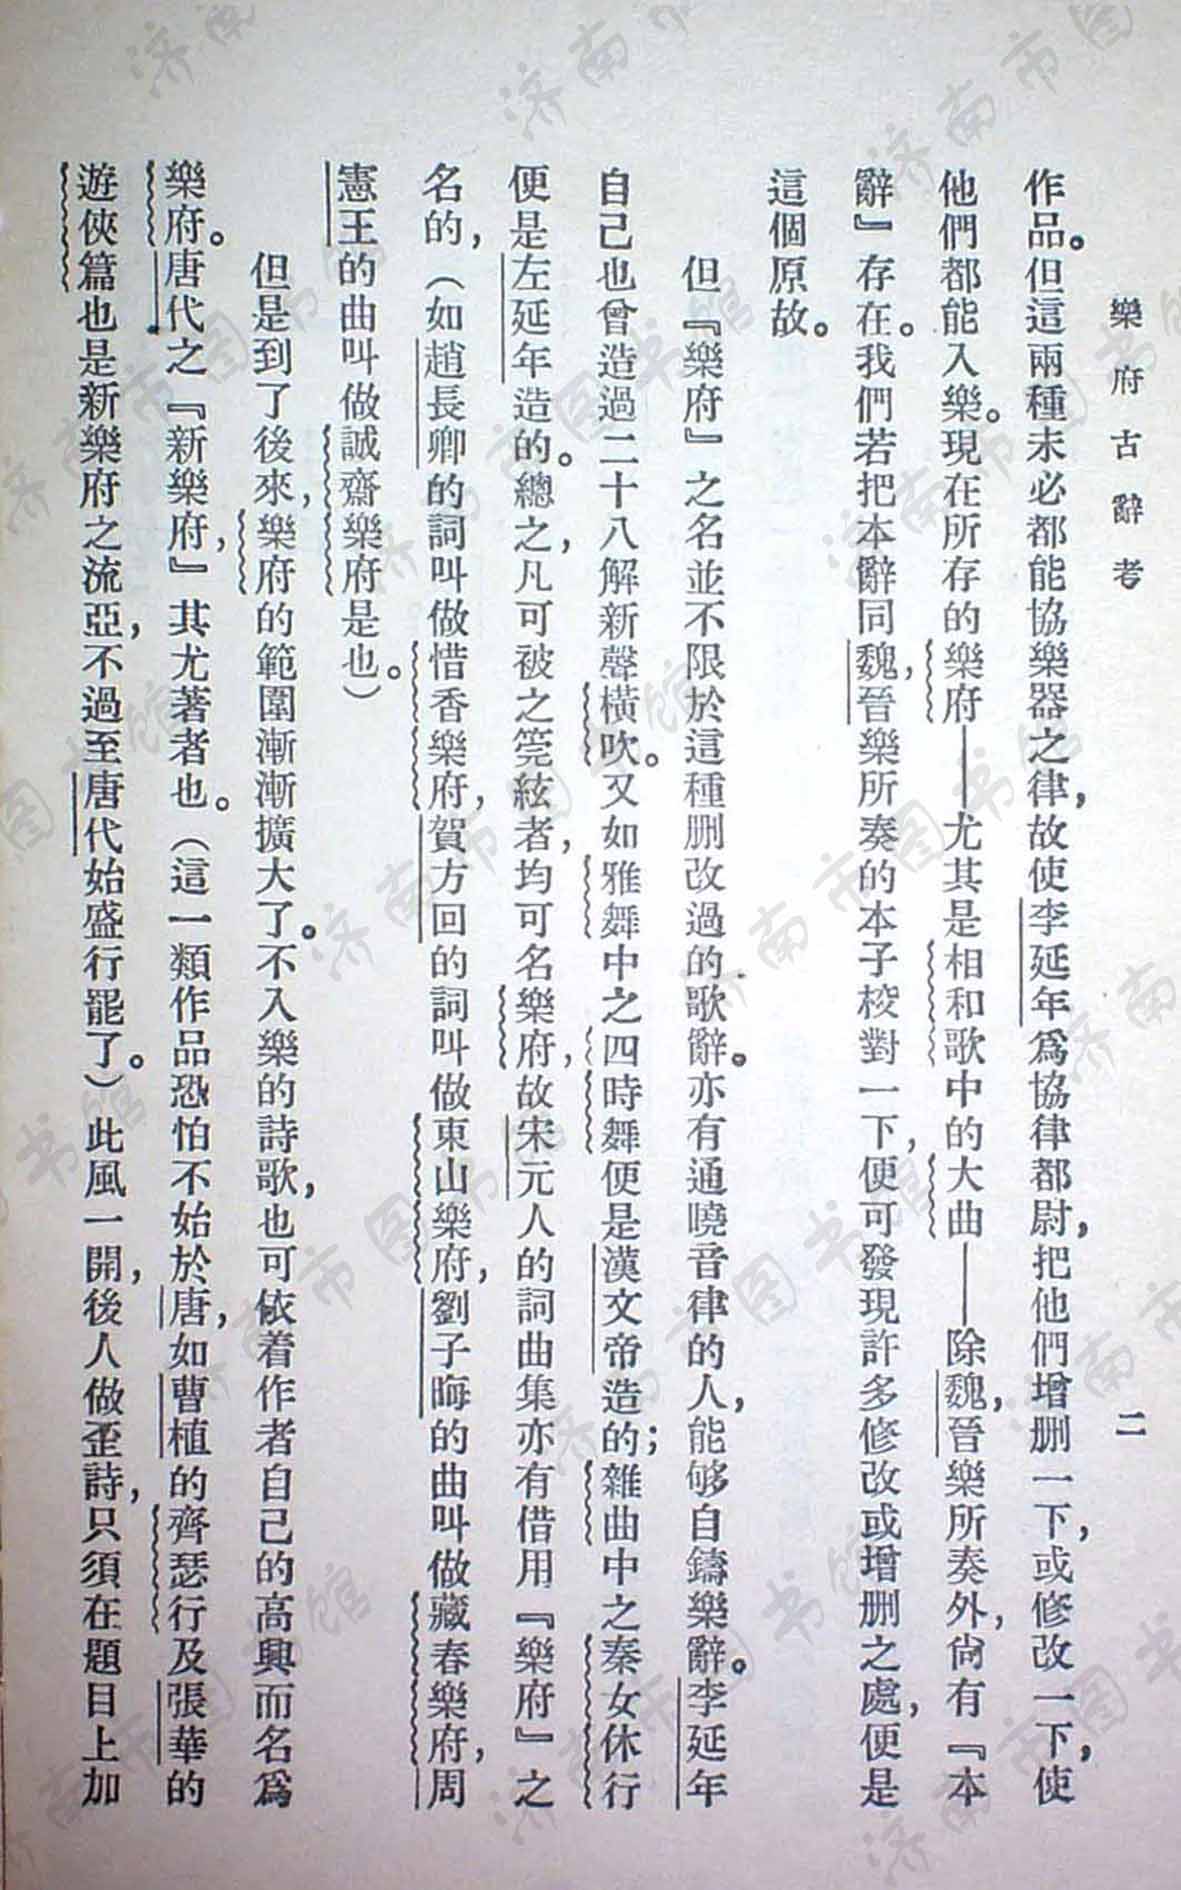 樂府古辭考
二
作品。但這兩種未必都能協樂器之律，故使李延年爲協律都尉，把他們增删一下，或修改一下，使
他們都能入樂。現在所存的樂府——尤其是相和歌中的大曲——除魏，晉樂所奏外，尙有『本
辭』存在。我們若把本辭同魏，晉樂所奏的本子校對一下，便可發現許多修改或增删之處，便是
這個原故。
但『樂府』之名並不限於這種删改過的歌辭。亦有通曉音律的人，能够自鑄樂辭。李延年
自己也曾造過二十八解新聲橫吹。又如雅舞中之四時舞便是漢文帝造的；雜曲中之秦女休行
便是左延年造的。總之，凡可被之筦絃者，均可名樂府，故宋元人的詞曲集亦有借用『樂府』之
名的，（如趙長卿的詞叫做惜香樂府，賀方回的詞叫做東山樂府，劉子晦的曲叫做藏春樂府，周
憲王的曲叫做誠齋樂府是也。）
但是到了後來，樂府的範圍漸漸擴大了。不入樂的詩歌，也可依着作者自己的高興而名爲
樂府。唐代之『新樂府，』其尤著者也。（這一類作品恐怕不始於唐，如曹植的齊瑟行及張華的
遊俠篇也是新樂府之流亞，不過至唐代始盛行罷了。）此風一開，後人做歪詩，只須在題目上加
济南市图书馆